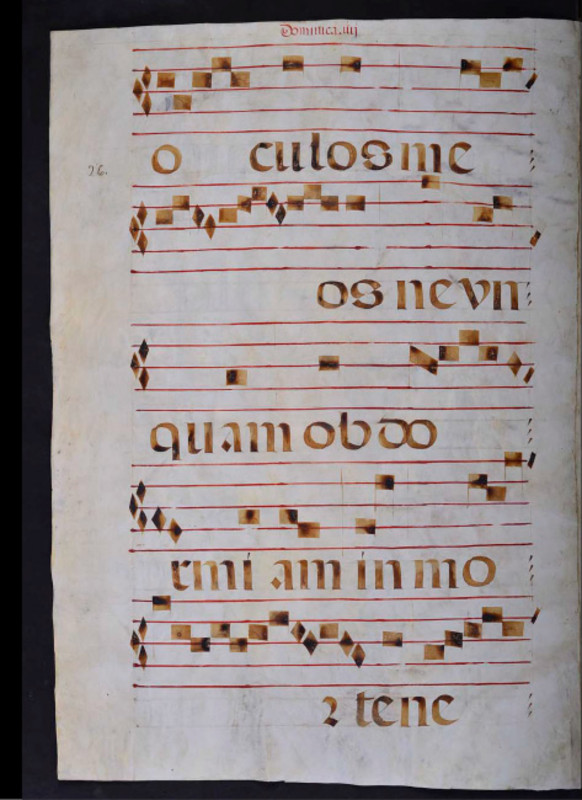 Dominica.iiij
o culos me
26.
os ne vn
quam ob do
rmi am in mo
2 tene